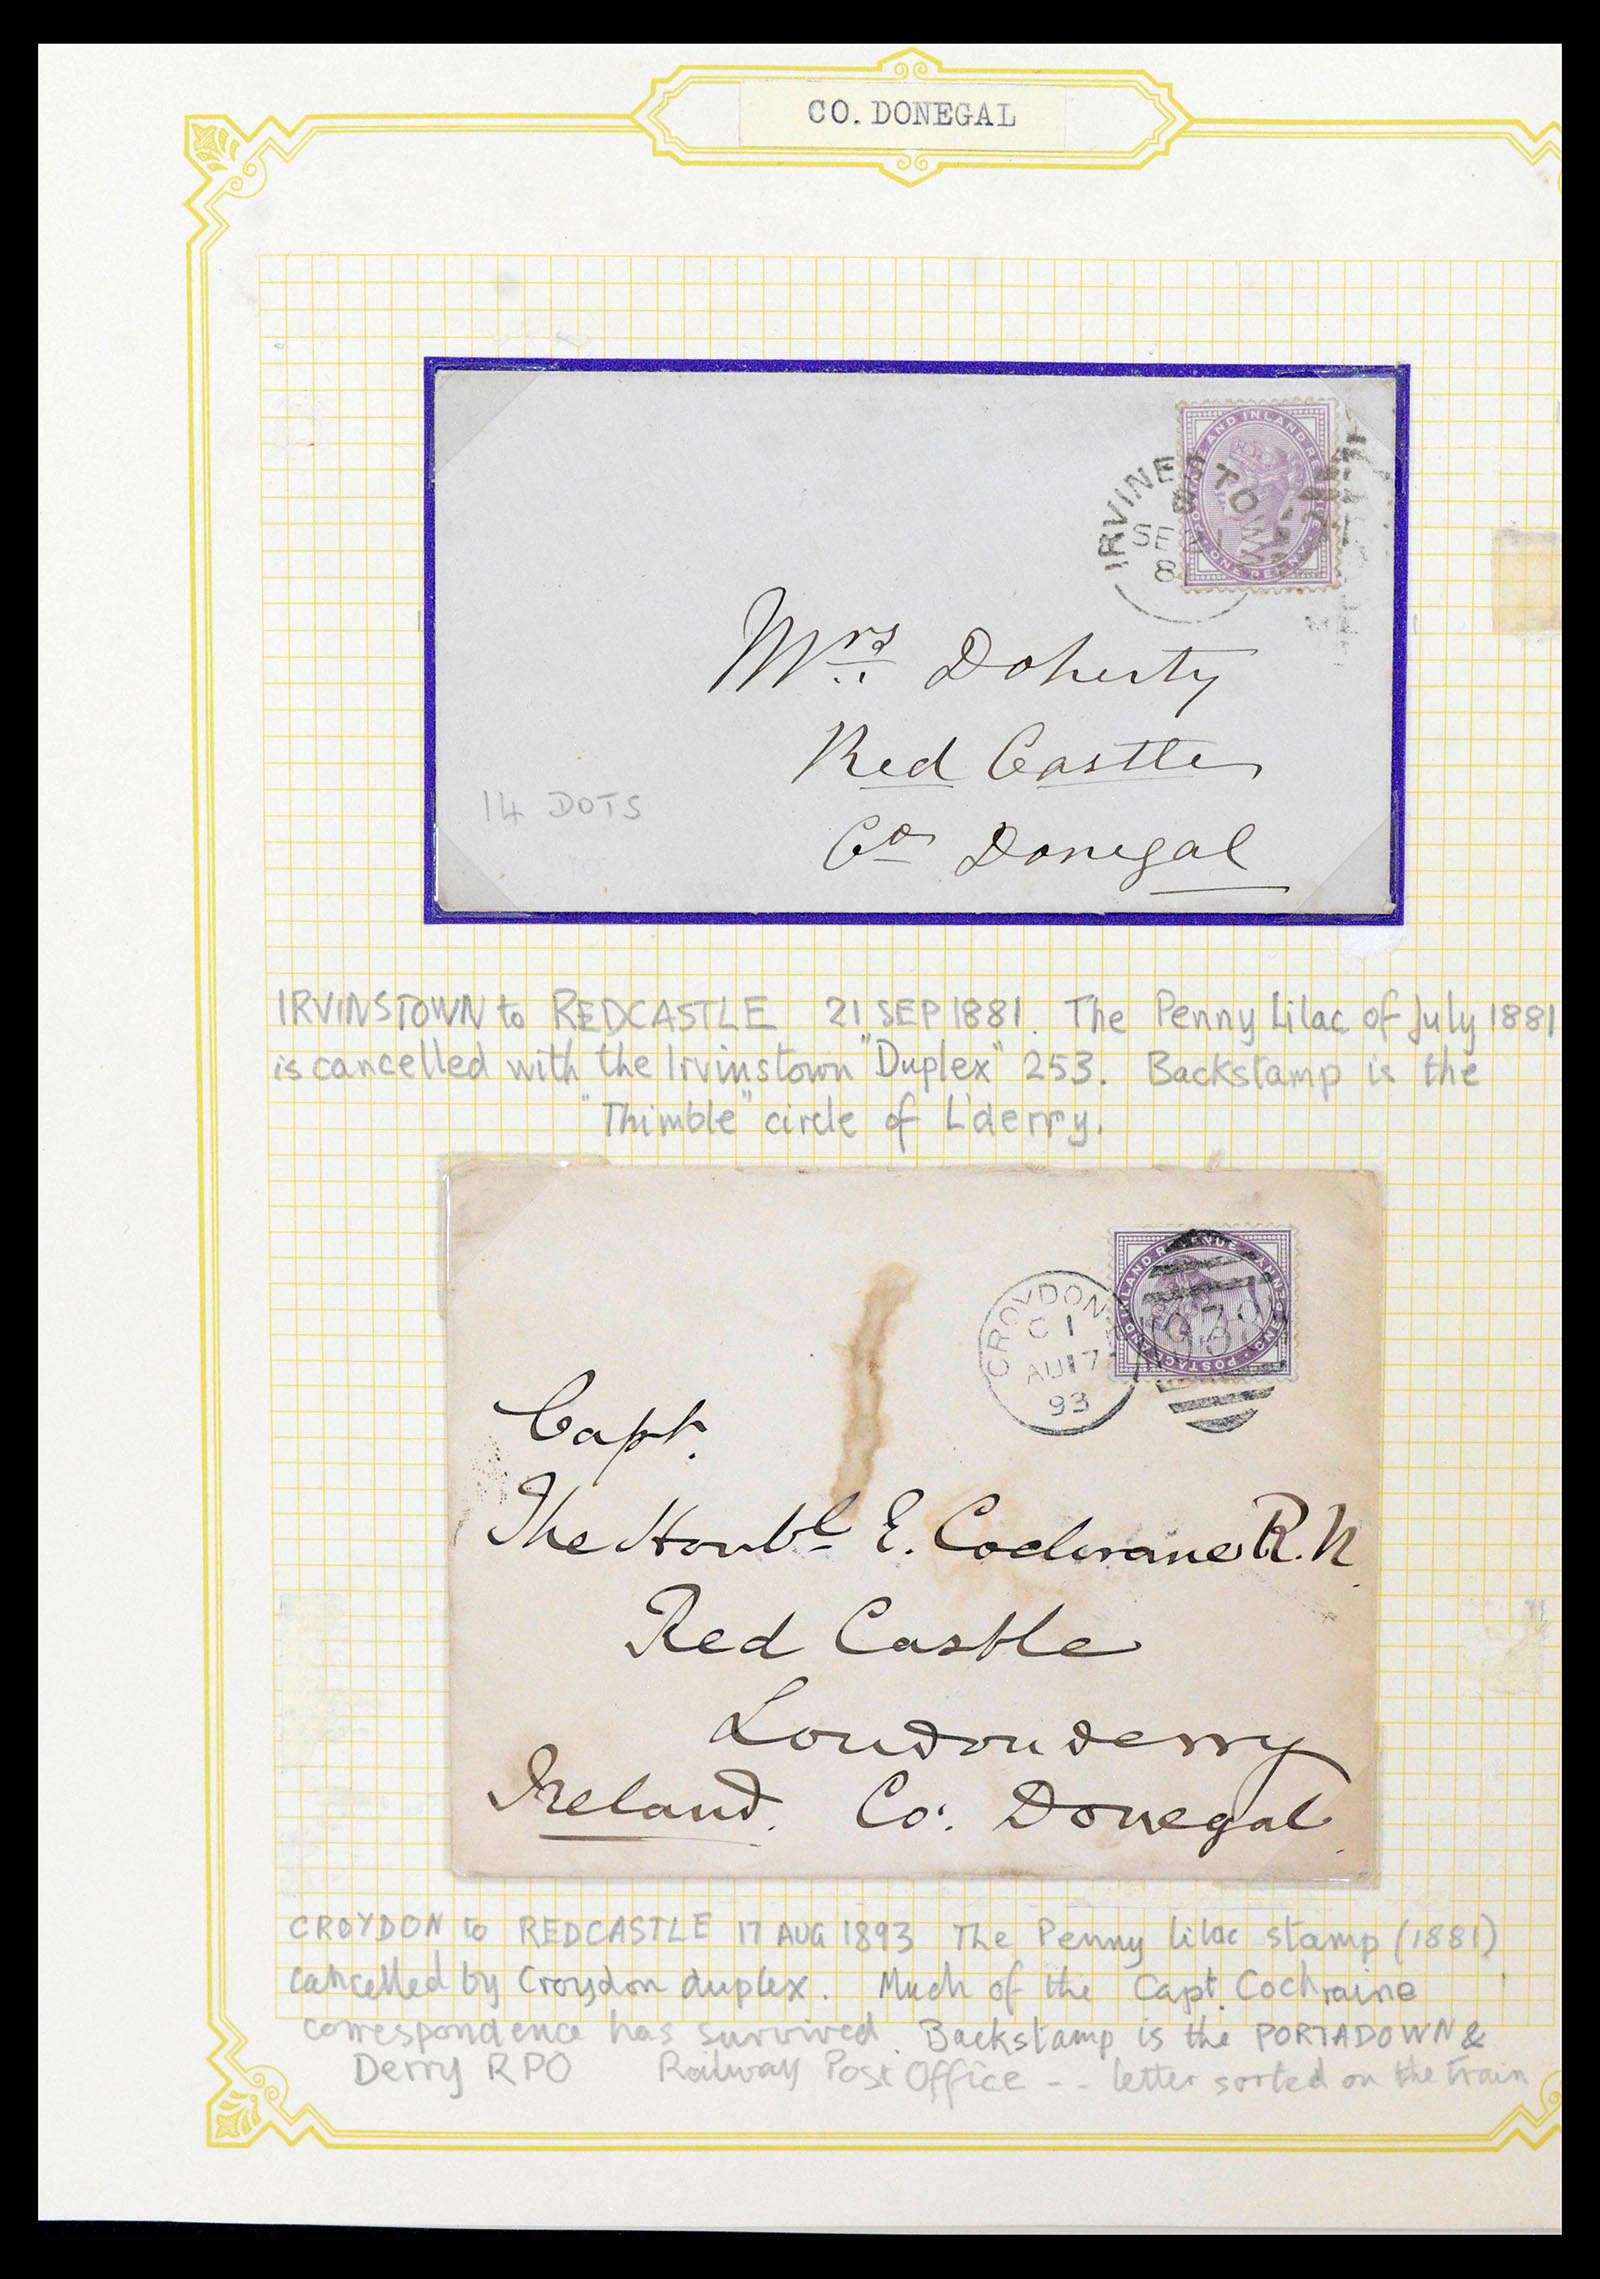 CO. DONEGAL
POSTAGE AND INLAND REVENUE
ONE PENNY
IRVINESTOWN
SE
8
Mrs Doherty
Red Castle
Co Donegal
14 DOTS
IRVINSTOWN to REDCASTLE 21 SEP 1881. The Penny Lilac of July 1881
is cancelled with the Irvinstown "Duplex" 253. Backstamp is the
"Thimble" circle of L'derry.
POSTAGE AND INLAND REVENUE
ONE PENNY
CROYDON
C 1
AU 17
93
Capt.
The Honbl E. Cochrane R.N.
Red Castle
Londonderry
Ireland. Co. Donegal
CROYDON to REDCASTLE 17 AUG 1893 The Penny lilac stamp (1881)
cancelled by Croydon duplex. Much of the Capt. Cochraine
correspondence has survived. Backstamp is the PORTADOWN &
Derry RPO Railway Post Office -- letter sorted on the train